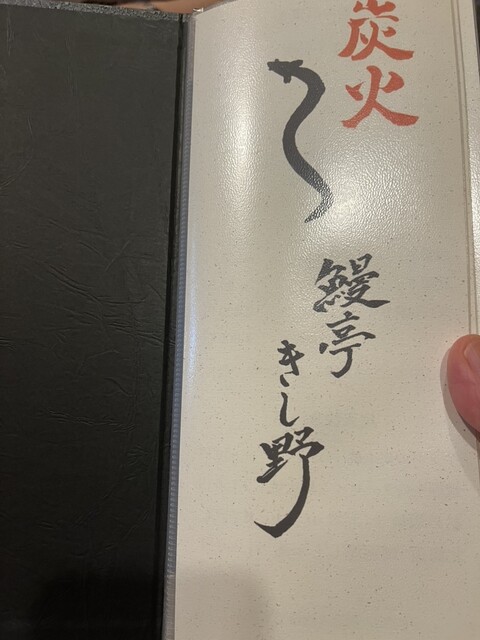 炭火
鰻亭
きし野